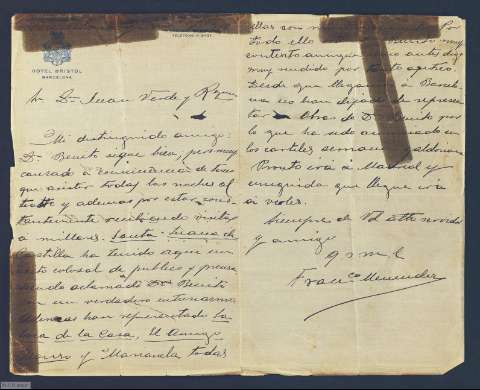 HOTEL BRISTOL
BARCELONA
TELEFONO
Sr. Dn. Juan Verde y
Mi distinguido amigo:
Dn. Benito sigue bien, pero muy
cansado a consecuencia de tener
que asistir todas las noches al
teatro y además por estar cons-
tantemente recibiendo visitas
a millares. Santa Juana de
Castilla ha tenido aquí un
éxito colosal de publico y prensa
siendo aclamado Dn. Benito
con un verdadero entusiasmo.
Además han representado La
loca de la Casa, El Amigo
Manso y Marianela todas
ellas con
todo ello muy
contento
muy rendido por
Desde que llegamos a Barcelo-
na no han dejado de represen-
tar obras de Dn. Benito por
lo que ha sido
los carteles
Pronto irá a Madrid y
enseguida que llegue irá
a verles.
Siempre de Vd. atto servidor
y amigo
q s m b
Franco Menendez